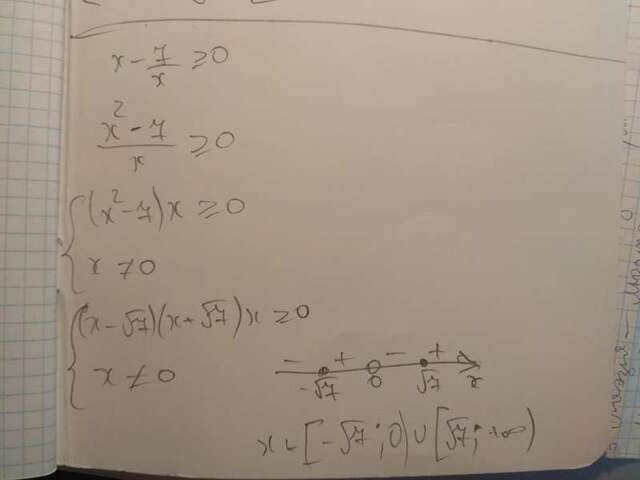 x - 7/x ≥ 0
(x² - 7)/x ≥ 0
{ (x² - 7)x ≥ 0
x ≠ 0
{ (x - √7)(x + √7)x ≥ 0
x ≠ 0
- + - +
-√7 0 √7 x
x ∈ [-√7; 0) ∪ [√7; +∞)